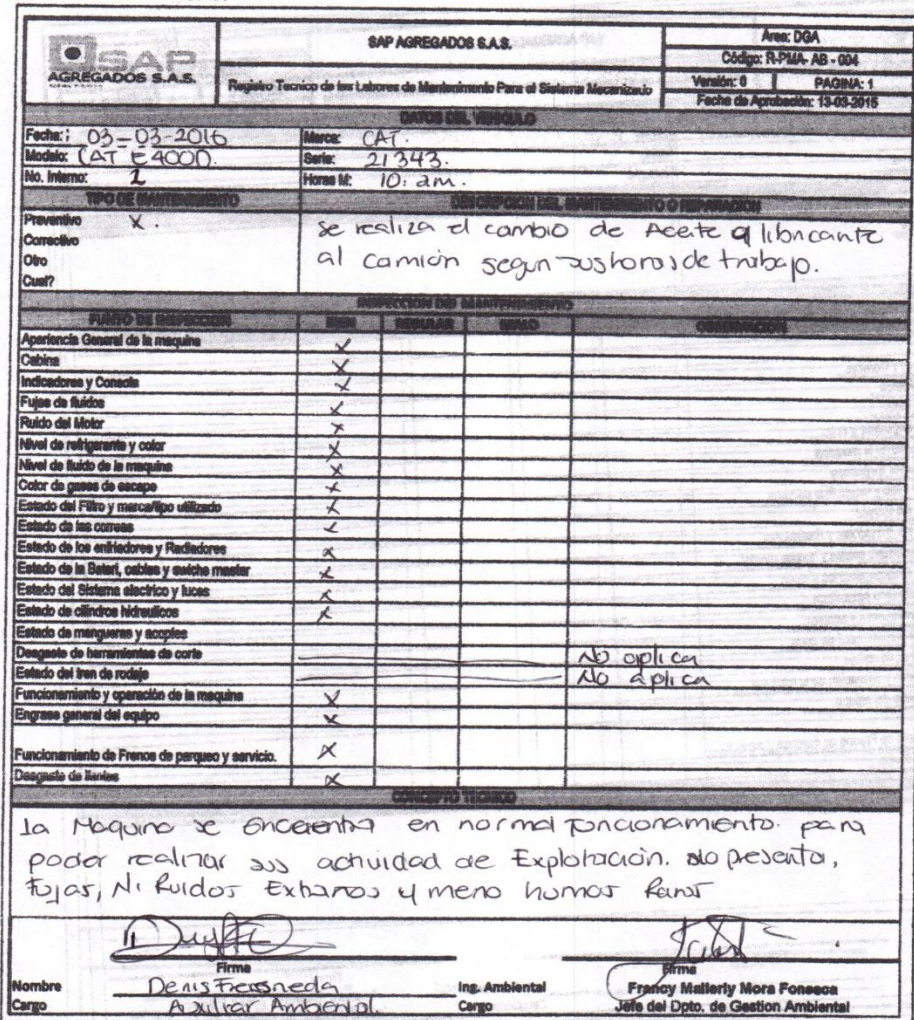 SAP
AGREGADOS S.A.S.
SAP AGREGADOS S.A.S.
Área: DGA
Código: R-PMA- AB - 004
Registro Tecnico de las Labores de Mantenimento Para el Sistema Mecanizado
Versión: 0 PAGINA: 1
Fecha de Aprobación: 13-03-2015
DATOS DEL VEHICULO
Fecha: 03-03-2016 Marca: CAT.
Modelo: CAT E400D. Serie: 21343.
No. Interno: 1 Horas M: 10: am.
TIPO DE MANTENIMIENTO DESCRIPCION DEL MANTENIMIENTO O REPARACION
Preventivo X.
Correctivo
Otro
Cual?
se realiza el cambio de Aceite libricante
al camión segun sus horas de trabajo.
INSPECCION DEL MANTENIMIENTO
PUNTO DE INSPECCION BIEN REGULAR MALO OBSERVACION
Apariencia General de la maquina X
Cabina X
Indicadores y Consola X
Fujas de fluidos X
Ruido del Motor X
Nivel de refrigerante y color X
Nivel de fluido de la maquina X
Color de gases de escape X
Estado del Filtro y marca/tipo utilizado X
Estado de las correas X
Estado de los enfriadores y Radiadores X
Estado de la Bateri, cables y swiche master X
Estado del Sistema electrico y luces X
Estado de cilindros hidraulicos X
Estado de mangueras y acoples
Desgaste de herramientas de corte No aplica
Estado del tren de rodaje No aplica
Funcionamiento y operación de la maquina X
Engrase general del equipo X
Funcionamiento de Frenos de parqueo y servicio. X
Desgaste de llantas X
CONCEPTO TECNICO
la Maquina se encuentra en normal funcionamiento para
poder realizar sus actividad de Explotación. No presenta,
Fujas, Ni Ruidos Extraños y meno humos
Firma Firma
Nombre Denis Ing. Ambiental Francy Mallerly Mora Fonseca
Cargo Auxiliar Ambiental. Cargo Jefe del Dpto. de Gestion Ambiental